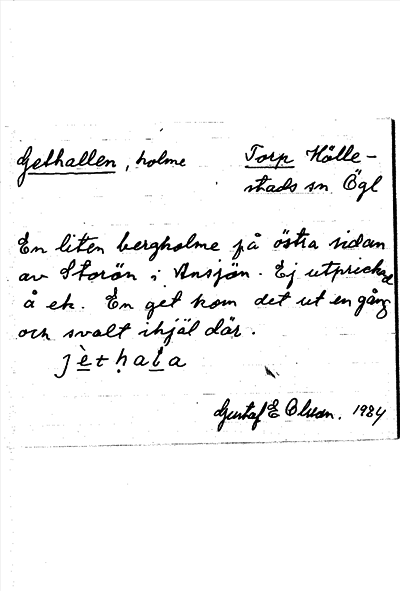 Gethallen, holme
Torp Hölle-
stads sn Ögl
En liten bergholme på östra sidan
av Storön i Ansjön. Ej utprickad
å ek. En get kom det ut en gång
och svalt ihjäl där.
jèthala
Gustaf E Olsson. 1984